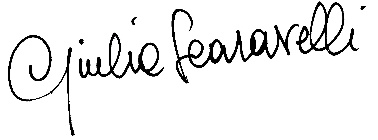 Giulia Scaravelli